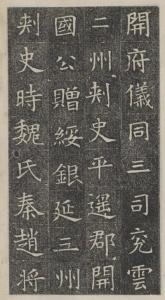 開府儀同三司兗雲
二州刺史平遥郡開
國公贈綏銀延三州
刺史時魏氏秦趙将